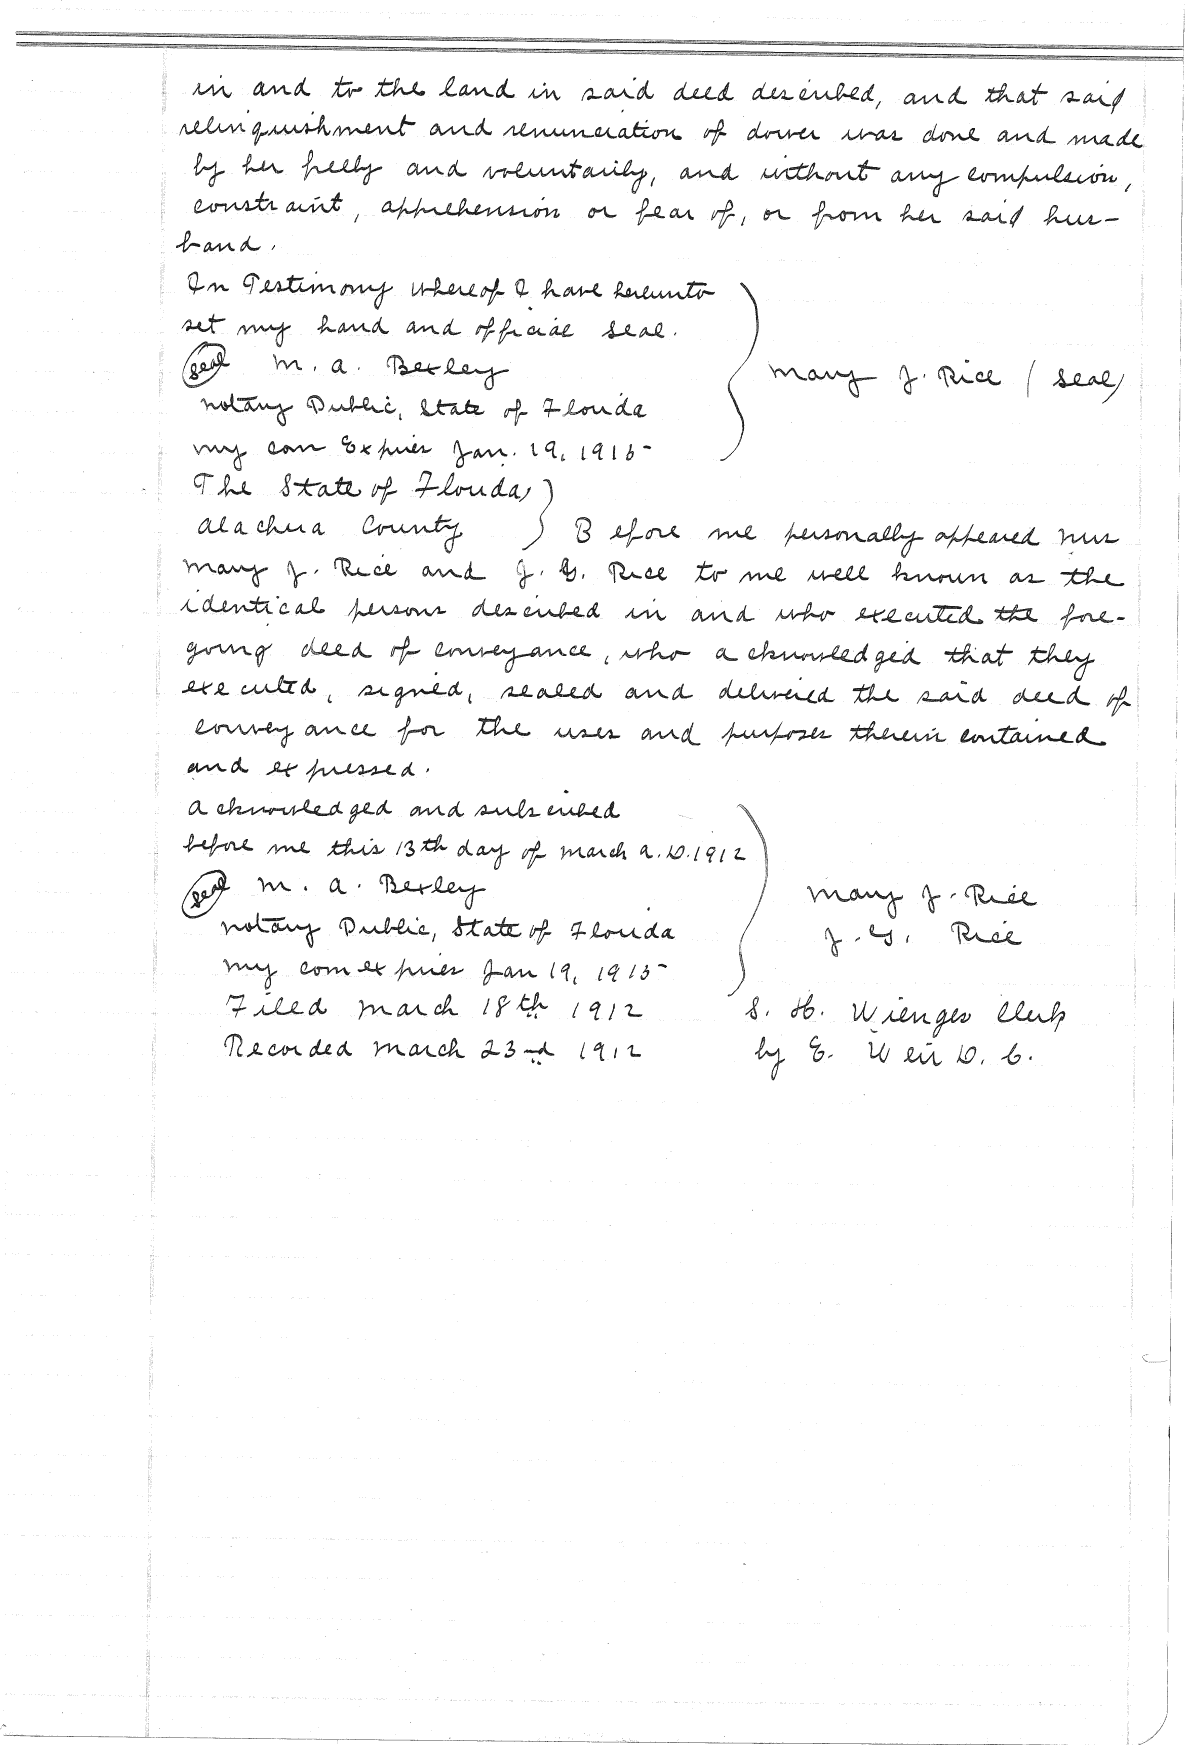 in and to the land in said deed described, and that said
relinquishment and renunciation of dower was done and made
by her freely and voluntarily, and without any compulsion,
constraint, apprehension or fear of, or from her said hus-
band.
In Testimony whereof I have hereunto
set my hand and official seal.
Seal M. A. Bexley
Notary Public, State of Florida
My com Expires Jan. 19, 1915
Mary J. Rice (Seal)
The State of Florida,
Alachua County
Before me personally appeared Mrs
Mary J. Rice and J. G. Rice to me well known as the
identical persons described in and who executed the fore-
going deed of conveyance, who acknowledged that they
executed, signed, sealed and delivered the said deed of
conveyance for the uses and purposes therein contained
and expressed.
Acknowledged and subscribed
before me this 13th day of March A.D. 1912
Seal M. A. Bexley
Notary Public, State of Florida
My com expires Jan 19, 1915
Mary J. Rice
J. G. Rice
Filed March 18th 1912
S. H. Wienges Clerk
Recorded March 23rd 1912
by E. Weir D. C.